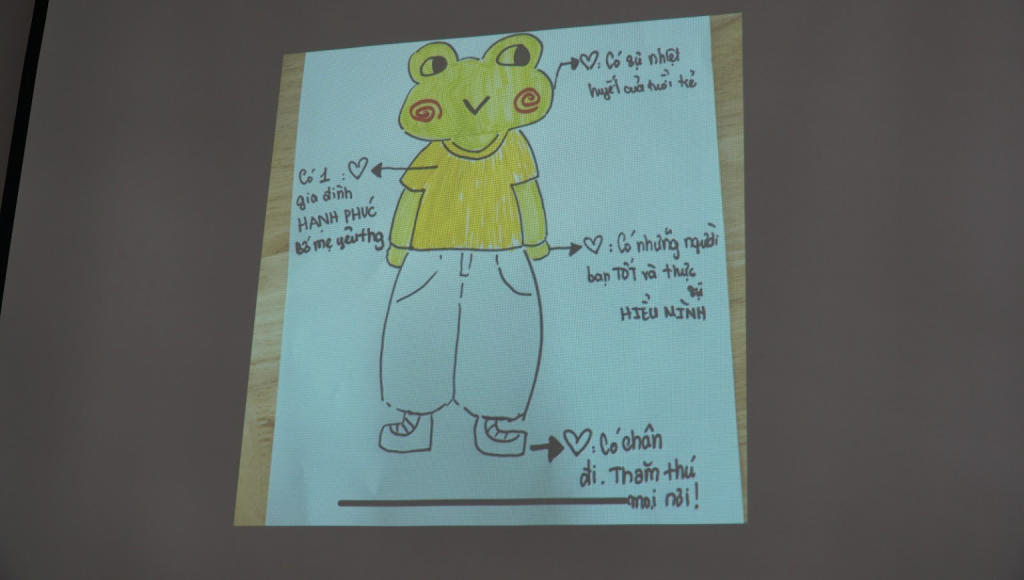 ♡: Có sự nhiệt
huyết của tuổi trẻ
Có 1 : ♡
gia đình
HẠNH PHÚC
bố mẹ yêu thg
♡: Có những người
bạn TỐT và thực
sự
HIỂU MÌNH
♡: Có chân
đi. Thăm thú
mọi nơi!